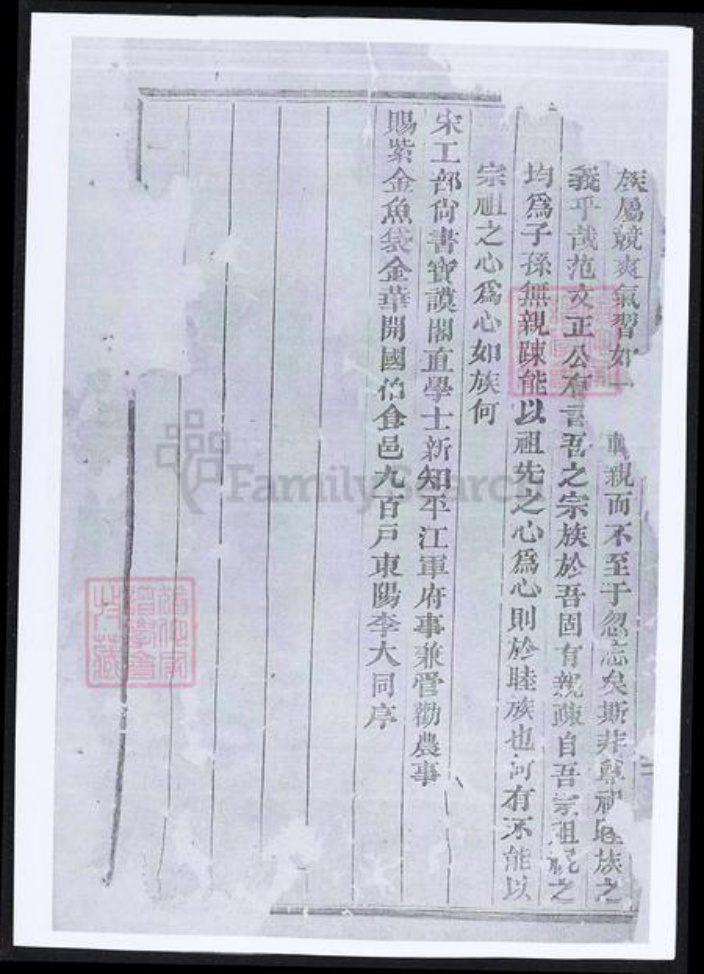 族屬競爽氣習如一 親而不至于忽忘矣斯非尊祖睦族之
義乎哉范文正公有言吾之宗族於吾固有親疎自吾宗祖視之
均爲子孫無親疎能以祖先之心爲心則於睦族也何有不能以
宗祖之心爲心如族何
宋工部尚書寶謨閣直學士新知平江軍府事兼管勸農事
賜紫金魚袋金華開國伯食邑九百戸東陽李大同序
FamilySearch